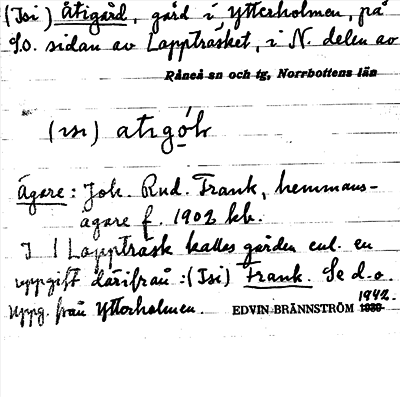 (Isi) åtigård, gård i Ytterholmen, på
S.o. sidan av Lappträsket, i N. delen av
Råneå sn och tg, Norrbottens län
(ɪsɪ) atɪgó̱k
Ägare: Joh. Rud. Frank, hemmans-
ägare f. 1902 kb.
I Lappträsk kallas gården enl. en
uppgift därifrån: (Isi) Frank. Se d.o.
Uppg. från Ytterholmen. EDVIN BRÄNNSTRÖM 1939 1942.